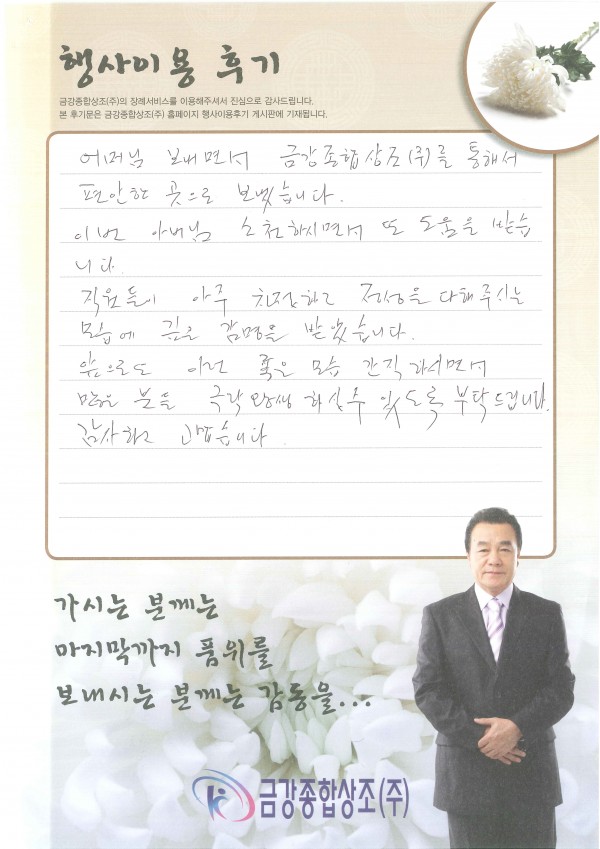 행사이용 후기
금강종합상조(주)의 장례서비스를 이용해주셔서 진심으로 감사드립니다.
본 후기문은 금강종합상조(주) 홈페이지 행사이용후기 게시판에 기재됩니다.
어머님 보내면서 금강종합상조(주)를 통해서
편안한 곳으로 보냈습니다.
이번 아버님 소천하시면서 또 도움을 받습
니다.
직원들이 아주 친절하고 정성을 다해주시는
모습에 깊은 감명을 받았습니다.
앞으로도 이런 좋은 모습 간직하시면서
많은 분들 극락왕생 하실수 있도록 부탁드립니다.
감사하고 고맙습니다.
가시는 분께는
마지막까지 품위를
보내시는 분께는 감동을...
금강종합상조(주)